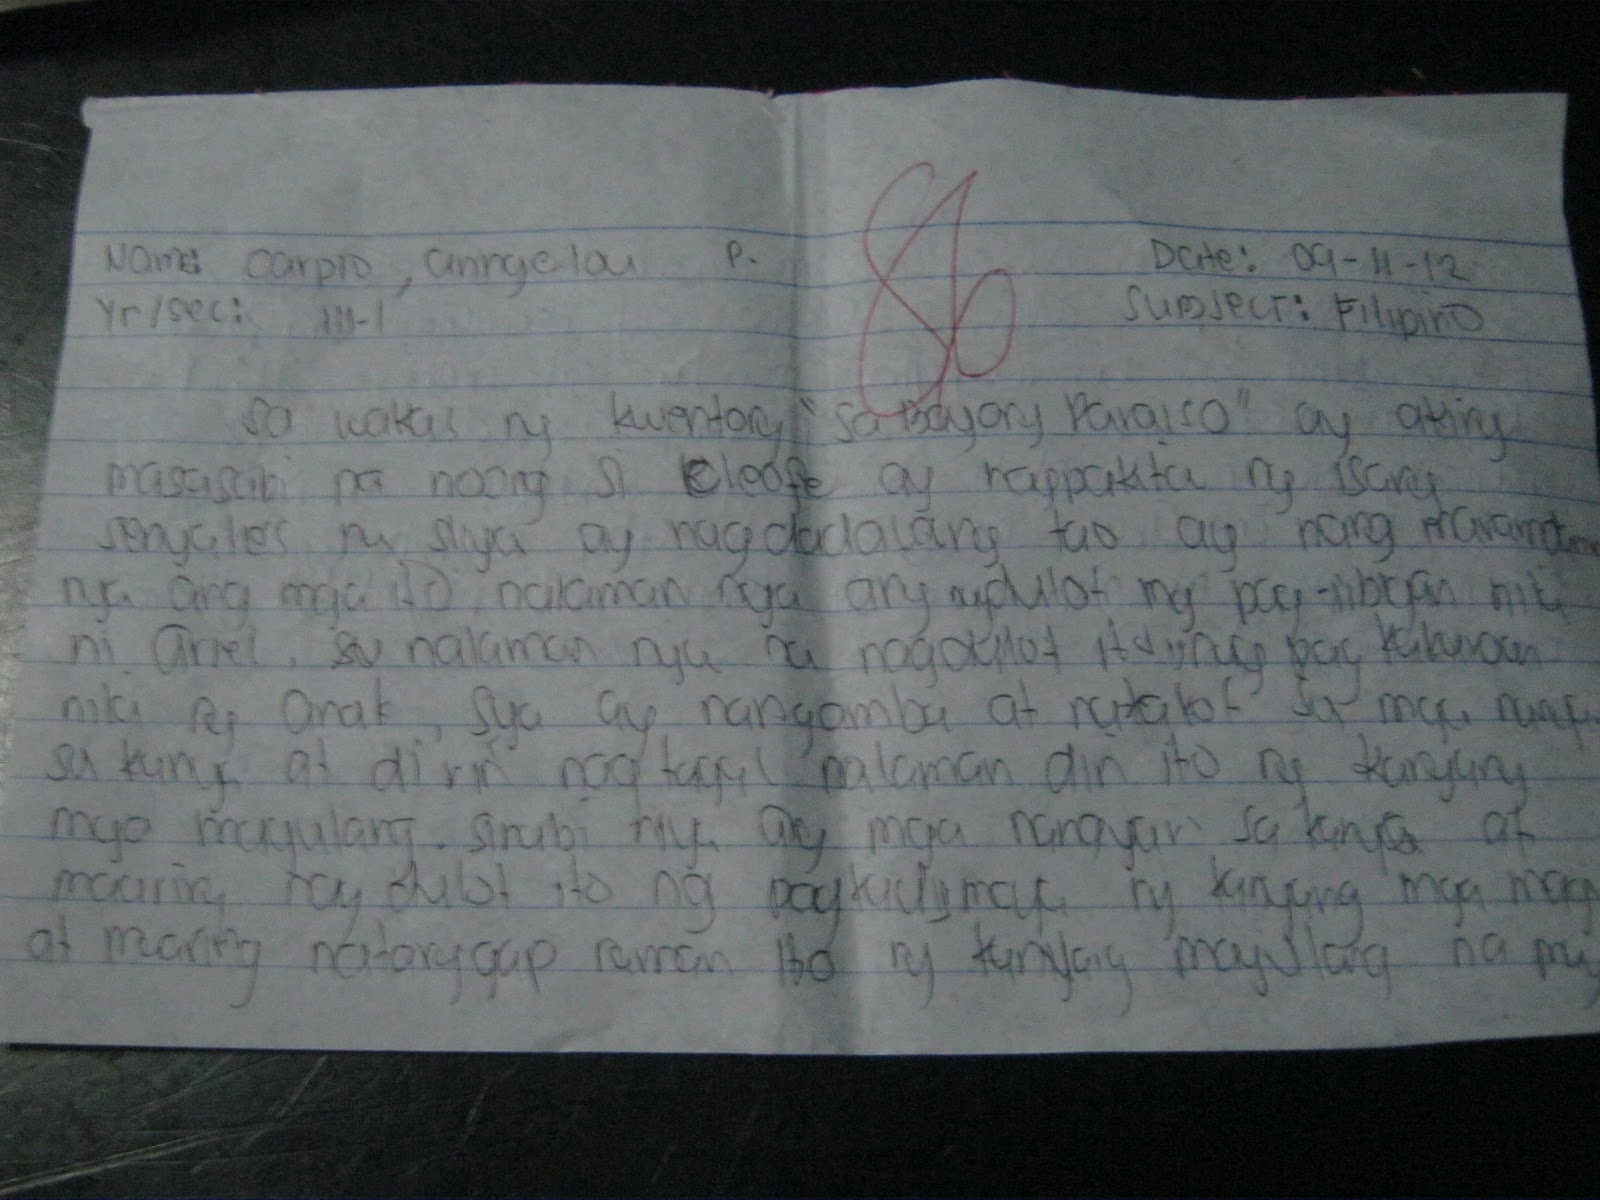 Name: Carpio, anngelou P. Date: 09-11-12
Yr/sec: III-1 Subject: Filipino
86
Sa wakas ng kwentong "Sa Bagong Paraiso" ay aking
masasabi na noong si Cleofe ay nagpakita ng isang
senyales na siya ay nagdadalang tao ay nang
nya ang mga ito nalaman nya ang ng pag-iibigan nila
ni Ariel. Sa nalaman nya na ito ng pag
nila ng anak, sya ay nangamba at natakot sa mga
sa kany at di rin nagtagal nalaman din ito ng kanyang
mga magulang. Sinabi nya ang mga nangyari sa kanya at
maaring nag dulot ito ng ng kanyang mga
at maaring natanggap naman ito ng kanyang magulang na